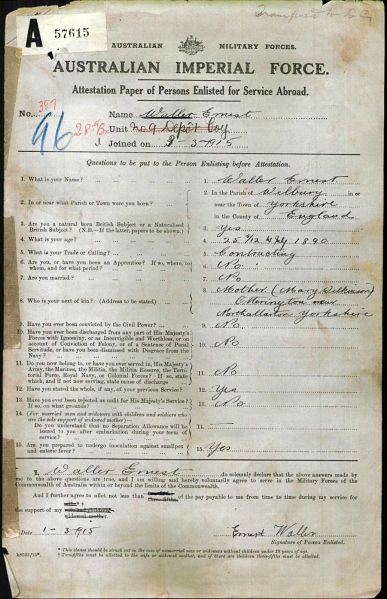 A 57615
AUSTRALIAN MILITARY FORCES.
AUSTRALIAN IMPERIAL FORCE.
Attestation Paper of Persons Enlisted for Service Abroad.
No. 96 389 Name Waller Ernest
28th Unit No 9 Depôt Coy
Joined on 1-3-1915
Questions to be put to the Person Enlisting before Attestation.
1. What is your Name? 1. Waller Ernest
2. In or near what Parish or Town were you born? 2. In the Parish of Welbury in or
near the Town of Yorkshire
in the County of England
3. Are you a natural born British Subject or a Naturalised British Subject? (N.B.—If the latter, papers to be shown.) 3. Yes
4. What is your age? 4. 25 July 1890
5. What is your Trade or Calling? 5. Contracting
6. Are you, or have you been an Apprentice? If so, where, to whom, and for what period? 6. No
7. Are you married? 7. No
8. Who is your next of kin? (Address to be stated) 8. Mother (Mary
near
Northallerton Yorkshire
9. Have you ever been convicted by the Civil Power? 9. No.
10. Have you ever been discharged from any part of His Majesty's Forces with Ignominy, or as Incorrigible and Worthless, or on account of Conviction of Felony, or of a Sentence of Penal Servitude, or have you been dismissed with Disgrace from the Navy? 10. No
11. Do you now belong to, or have you ever served in, His Majesty's Army, the Marines, the Militia, the Militia Reserve, the Territorial Force, Royal Navy, or Colonial Forces? If so, state which, and if not now serving, state cause of discharge 11. No
12. Have you stated the whole, if any, of your previous Service? 12. Yes
13. Have you ever been rejected as unfit for His Majesty's Service? If so, on what grounds? 13. No
14. (For married men and widowers with children and soldiers who are the sole support of widowed mother)
Do you understand that no Separation Allowance will be issued to you after embarkation during your term of service? 14. —
15. Are you prepared to undergo inoculation against smallpox and enteric fever? 15. Yes
I, Waller Ernest do solemnly declare that the above answers made by me to the above questions are true, and I am willing and hereby voluntarily agree to serve in the Military Forces of the Commonwealth of Australia within or beyond the limits of the Commonwealth.
And I further agree to allot not less than of the pay payable to me from time to time during my service for the support of my
Date 1-3-1915 Ernest Waller
Signature of Person Enlisted.
* This clause should be struck out in the case of unmarried men or widowers without children under 18 years of age.
† Two-fifths must be allotted to the wife or widowed mother, and if there are children three-fifths must be allotted.